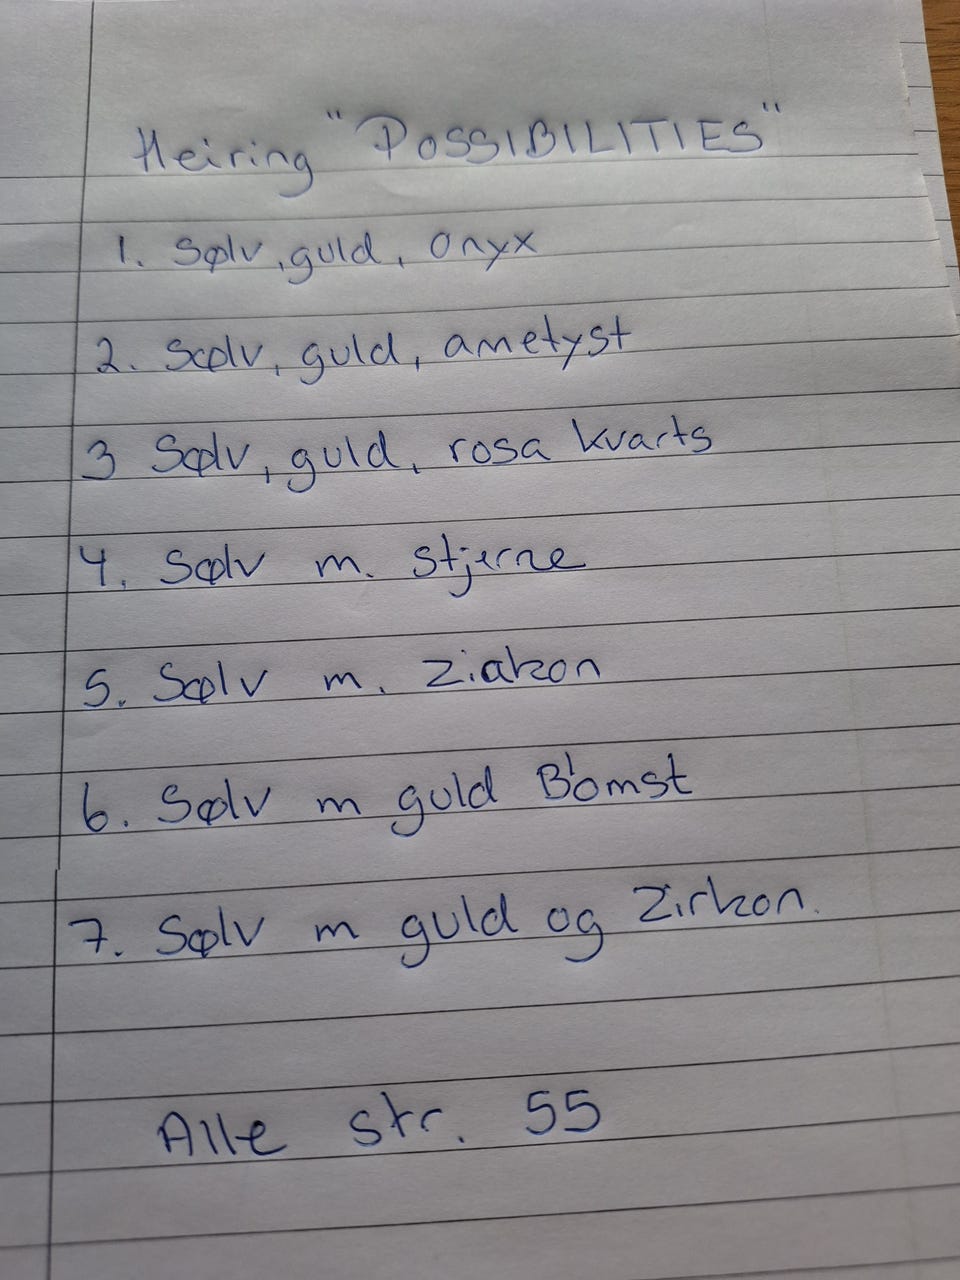 Heiring "POSSIBILITIES"
1. Sølv, guld, onyx
2. Sølv, guld, ametyst
3 Sølv, guld, rosa kvarts
4. Sølv m. stjerne
5. Sølv m. Ziakon
6. Sølv m guld Blomst
7. Sølv m guld og Zirkon.
Alle str. 55